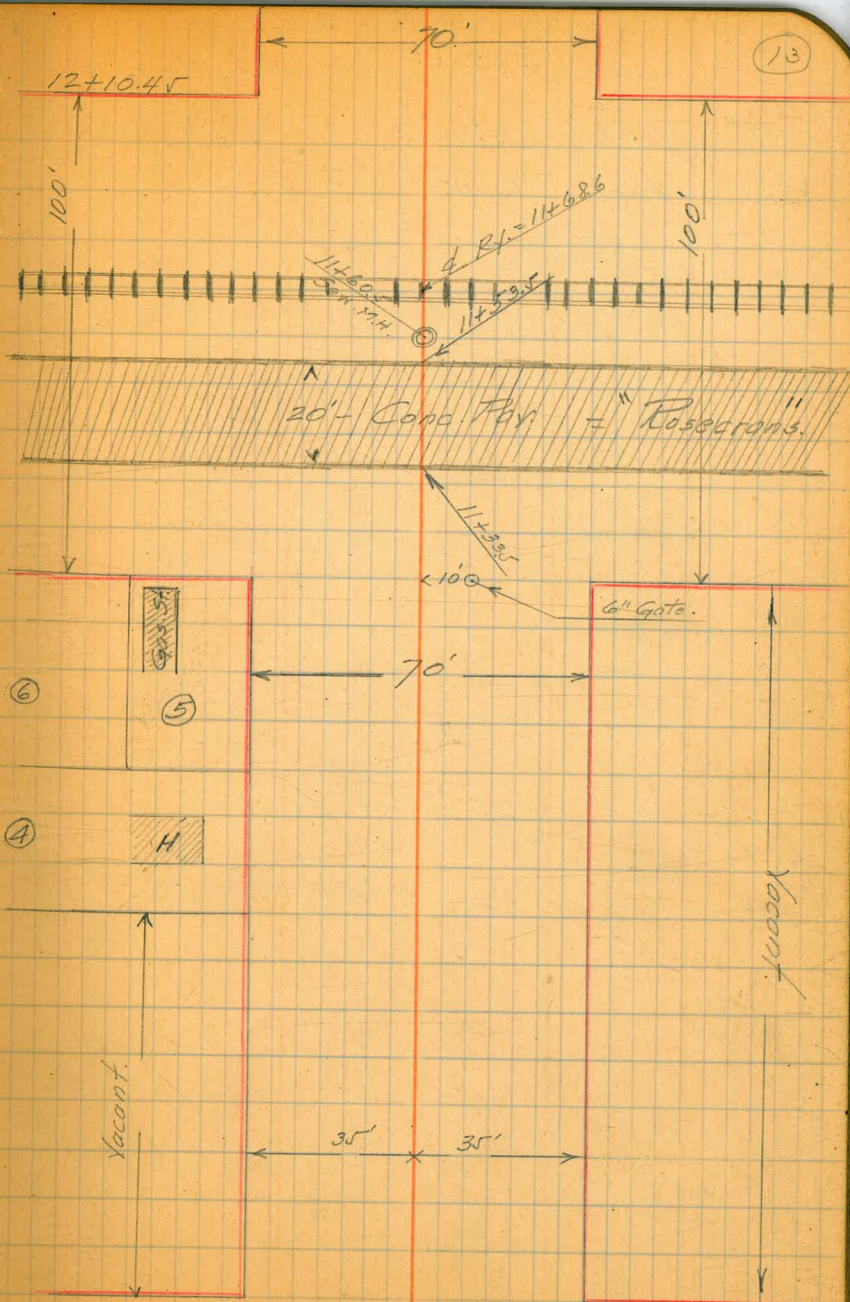 13
70'
12+10.45
100'
100'
℄ Ry. = 11+68.6
11+60.5
Sew. M.H.
11+53.5
20' - Conc. Pav. = "Rosecrans".
11+33.5
10'
6" Gate.
Gas. St.
70'
6
5
4
H
Vacant
Vacant.
35'
35'